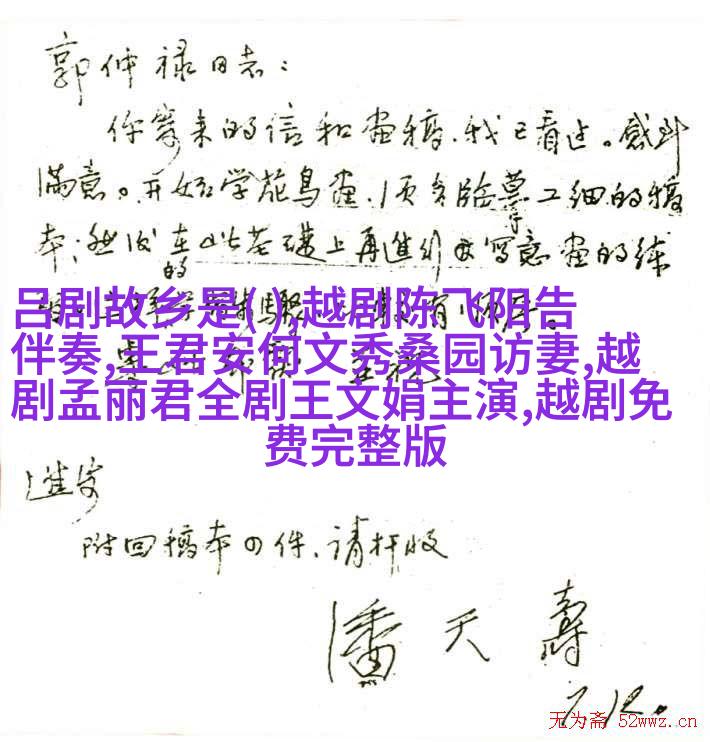 郭仲禄同志：
你寄来的信和画稿，我已看过。感到
满意。开始学花鸟画，须多临摹工细的稿
本；然后在此基础上再进行写意画的练
的
吕剧故乡是( ),越剧陈飞阴告
伴奏,王君安何文秀桑园访妻,越
剧孟丽君全剧王文娟主演,越剧免
费完整版
进安
附回稿本四件，请检收
潘天寿
7.12。
无为斋 52wwz.cn